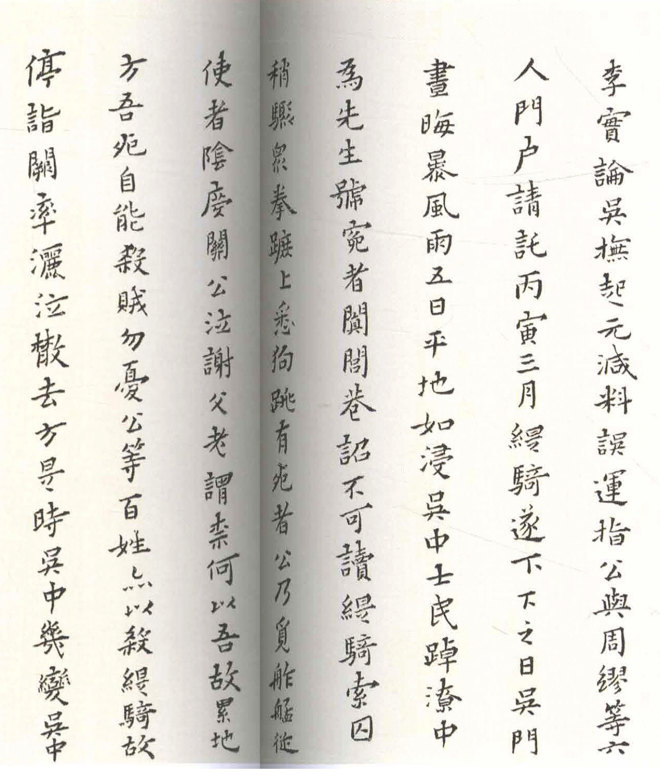 李實論吳撫起元減料誤運指公與周繆等六
人門戶請託丙寅三月緹騎遂下下之日吳門
晝晦暴風雨五日平地如浸吳中士民踔潦中
為先生號寃者闐閭巷詔不可讀緹騎索囚
稍驟衆拳蹠上悉狗跳有死者公乃覓舴艋從
使者陰度關公泣謝父老謂柰何以吾故累地
方吾死自能殺賊勿憂公等百姓亦以殺緹騎故
停詣闕率灑泣散去方是時吳中幾變吳中